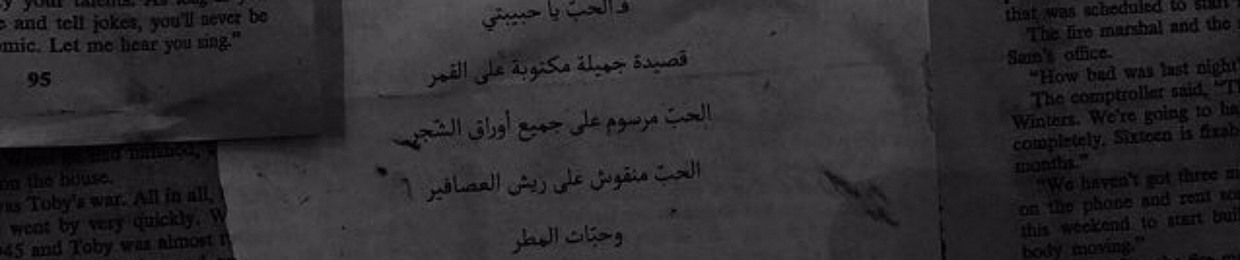 y your talents. As long as y
e and tell jokes, you'll never be
mic. Let me hear you sing."
95
had finished,
on the house.
as Toby's war. All in all,
went by very quickly. W
45 and Toby was almost
فـالحبّ يا حبيبتي
قصيدة جميلة مكتوبة على القمر
الحبّ مرسوم على جميع أوراق الشّجر
الحبّ منقوش على ريش العصافير
وحبّات المطر
that was scheduled to start
The fire marshal and the
Sam's office.
"How bad was last night
The comptroller said, "T
Winters. We're going to ha
completely. Sixteen is fixab
months."
"We haven't got three m
on the phone and rent so
this weekend to start buil
body moving."